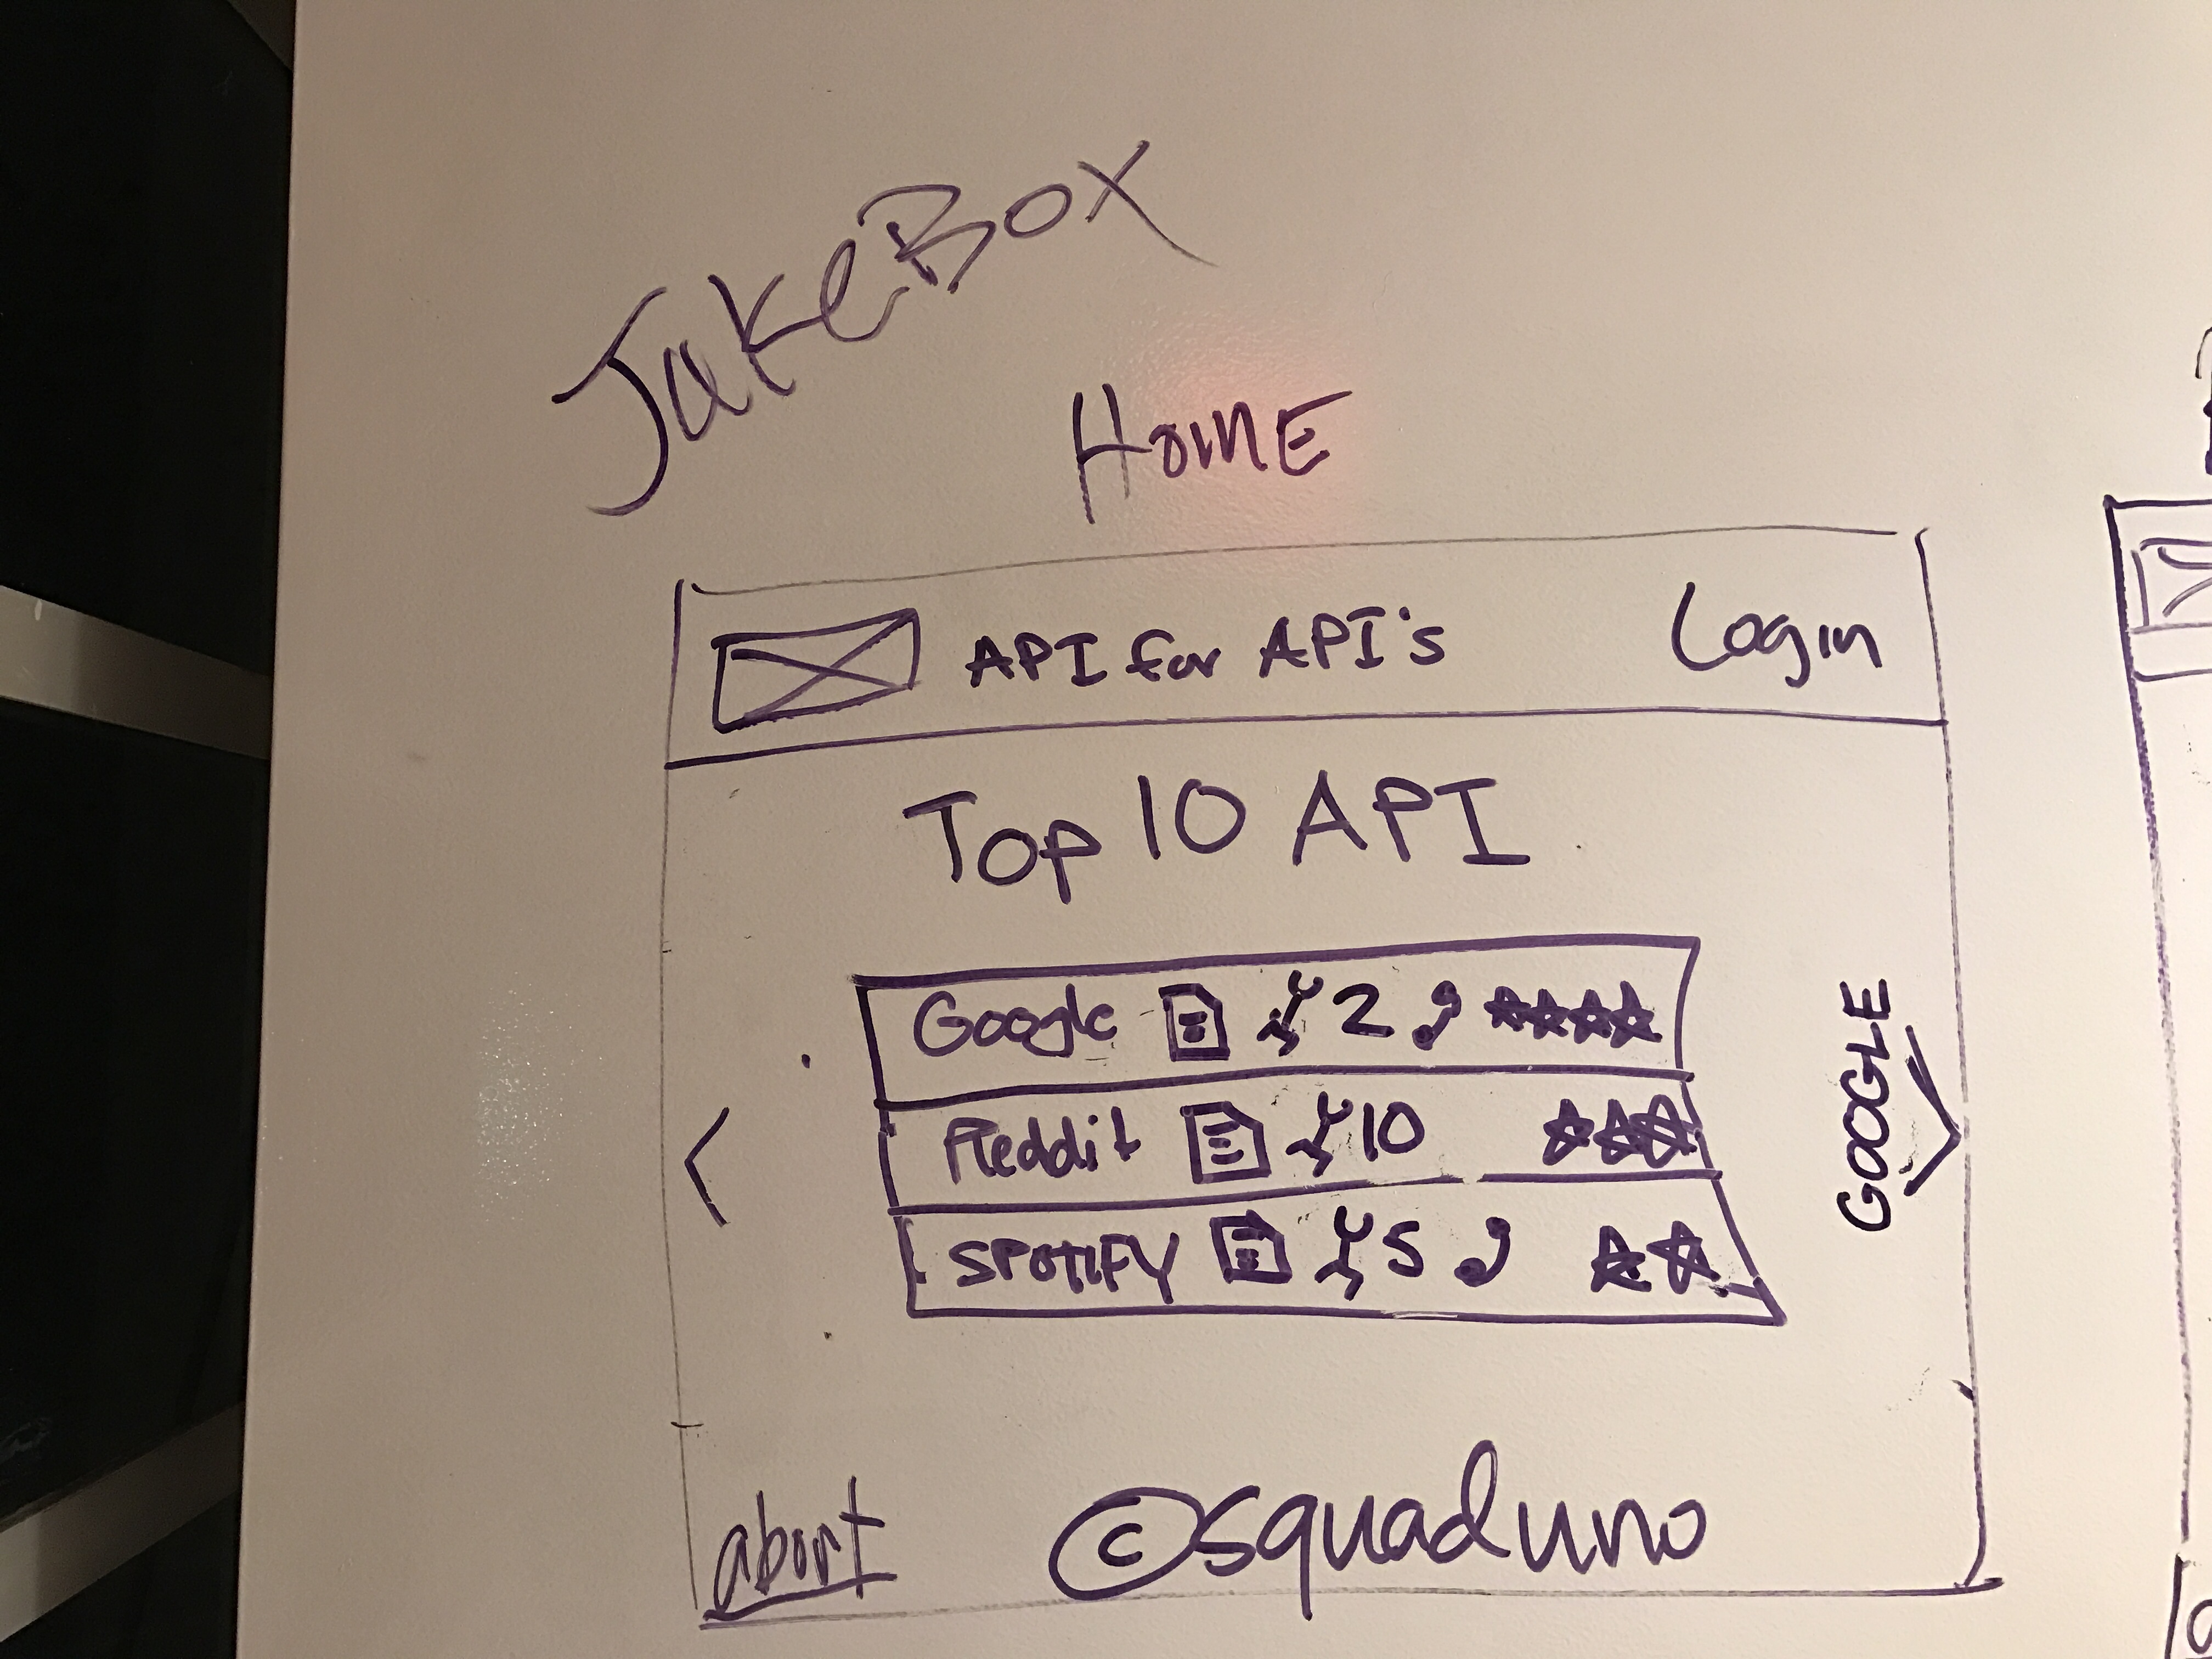 JakeBox
Home
API for API's Login
Top 10 API
Google 2
Reddit 10
SPOTIFY 5
GOOGLE
abort
©squaduno